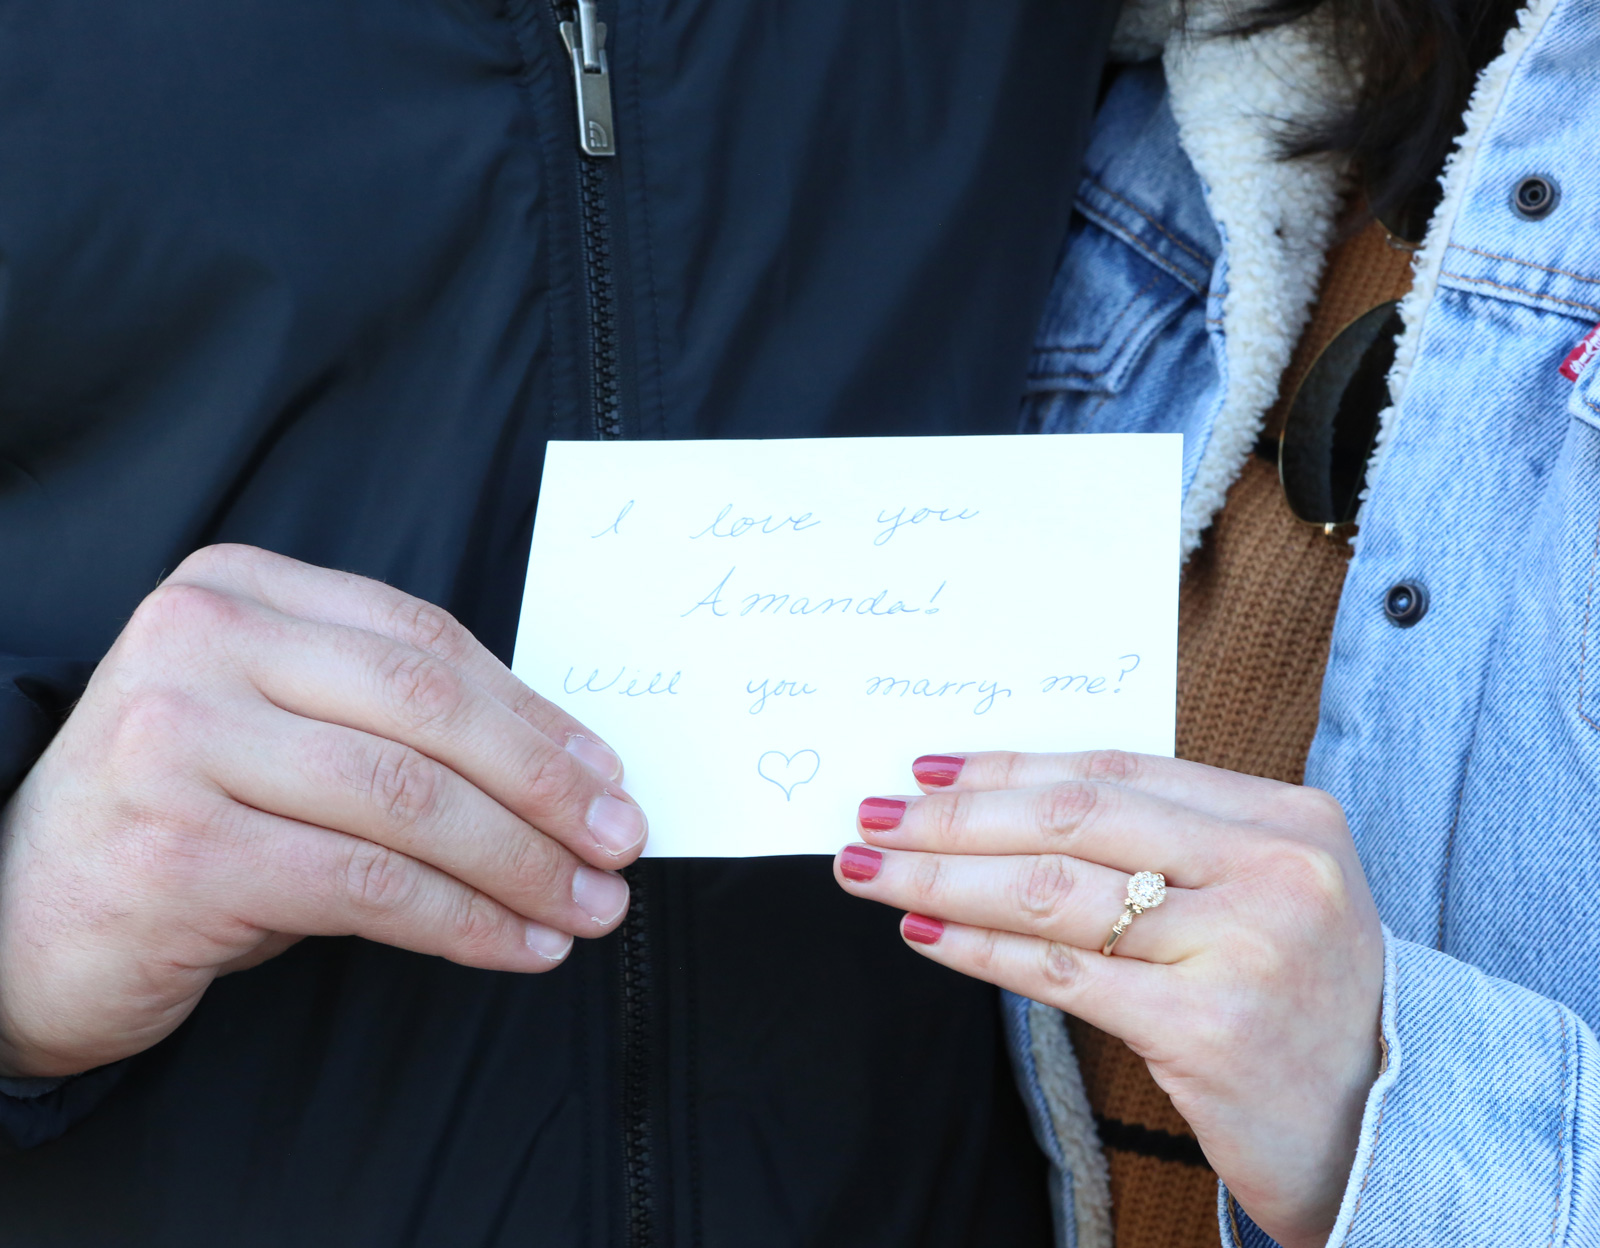 I love you
Amanda!
Will you marry me?